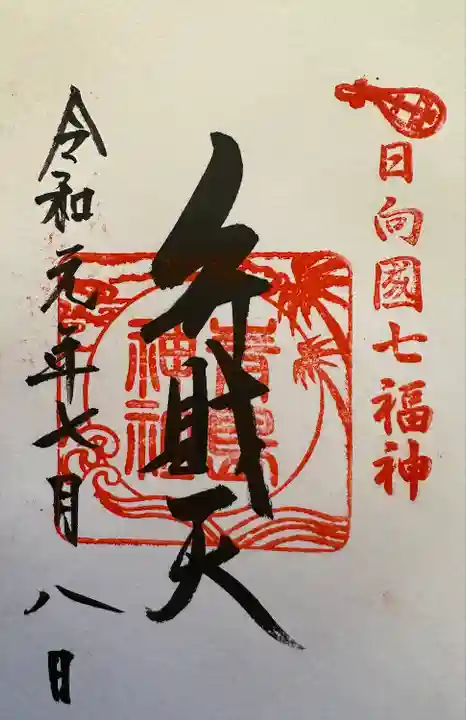 日向國七福神
弁財天
青島
神社
令和元年七月八日